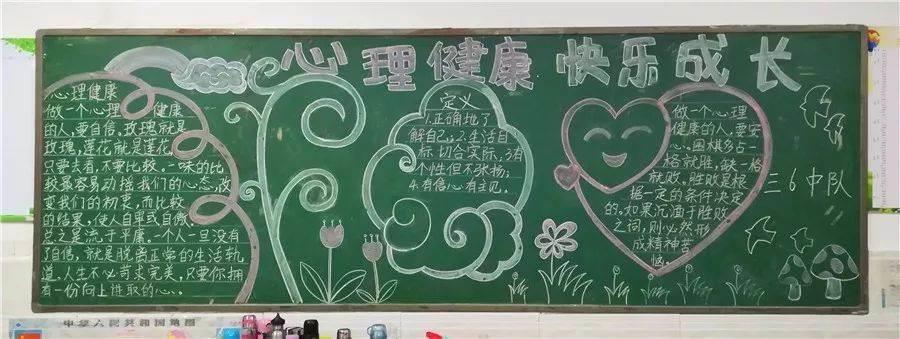 心理健康 快乐成长
心理健康
做一个心理健康
的人,要自信,玫瑰就是
玫瑰,莲花就是莲花,
只要去看,不要比较。一味的比
较最容易动摇我们的心态,改
变我们的初衷,而比较
的结果,使人自卑或自傲,
总之是流于平庸。一个人一旦没有
了自信,就是脱离正常的生活轨
道。人生不必苛求完美,只要你拥
有一份向上进取的心。
定义
1.正确地了
解自己;2.生活目
标切合实际;3.有
个性但不张扬;
4.有信心有主见。
做一个心理
健康的人,要安
心。围棋多占一
格就胜,缺一格
就败。胜败是根
据一定的条件决定
的。如果沉湎于胜败
之间,则必然形
成精神苦
恼。
三6中队
中华人民共和国地图